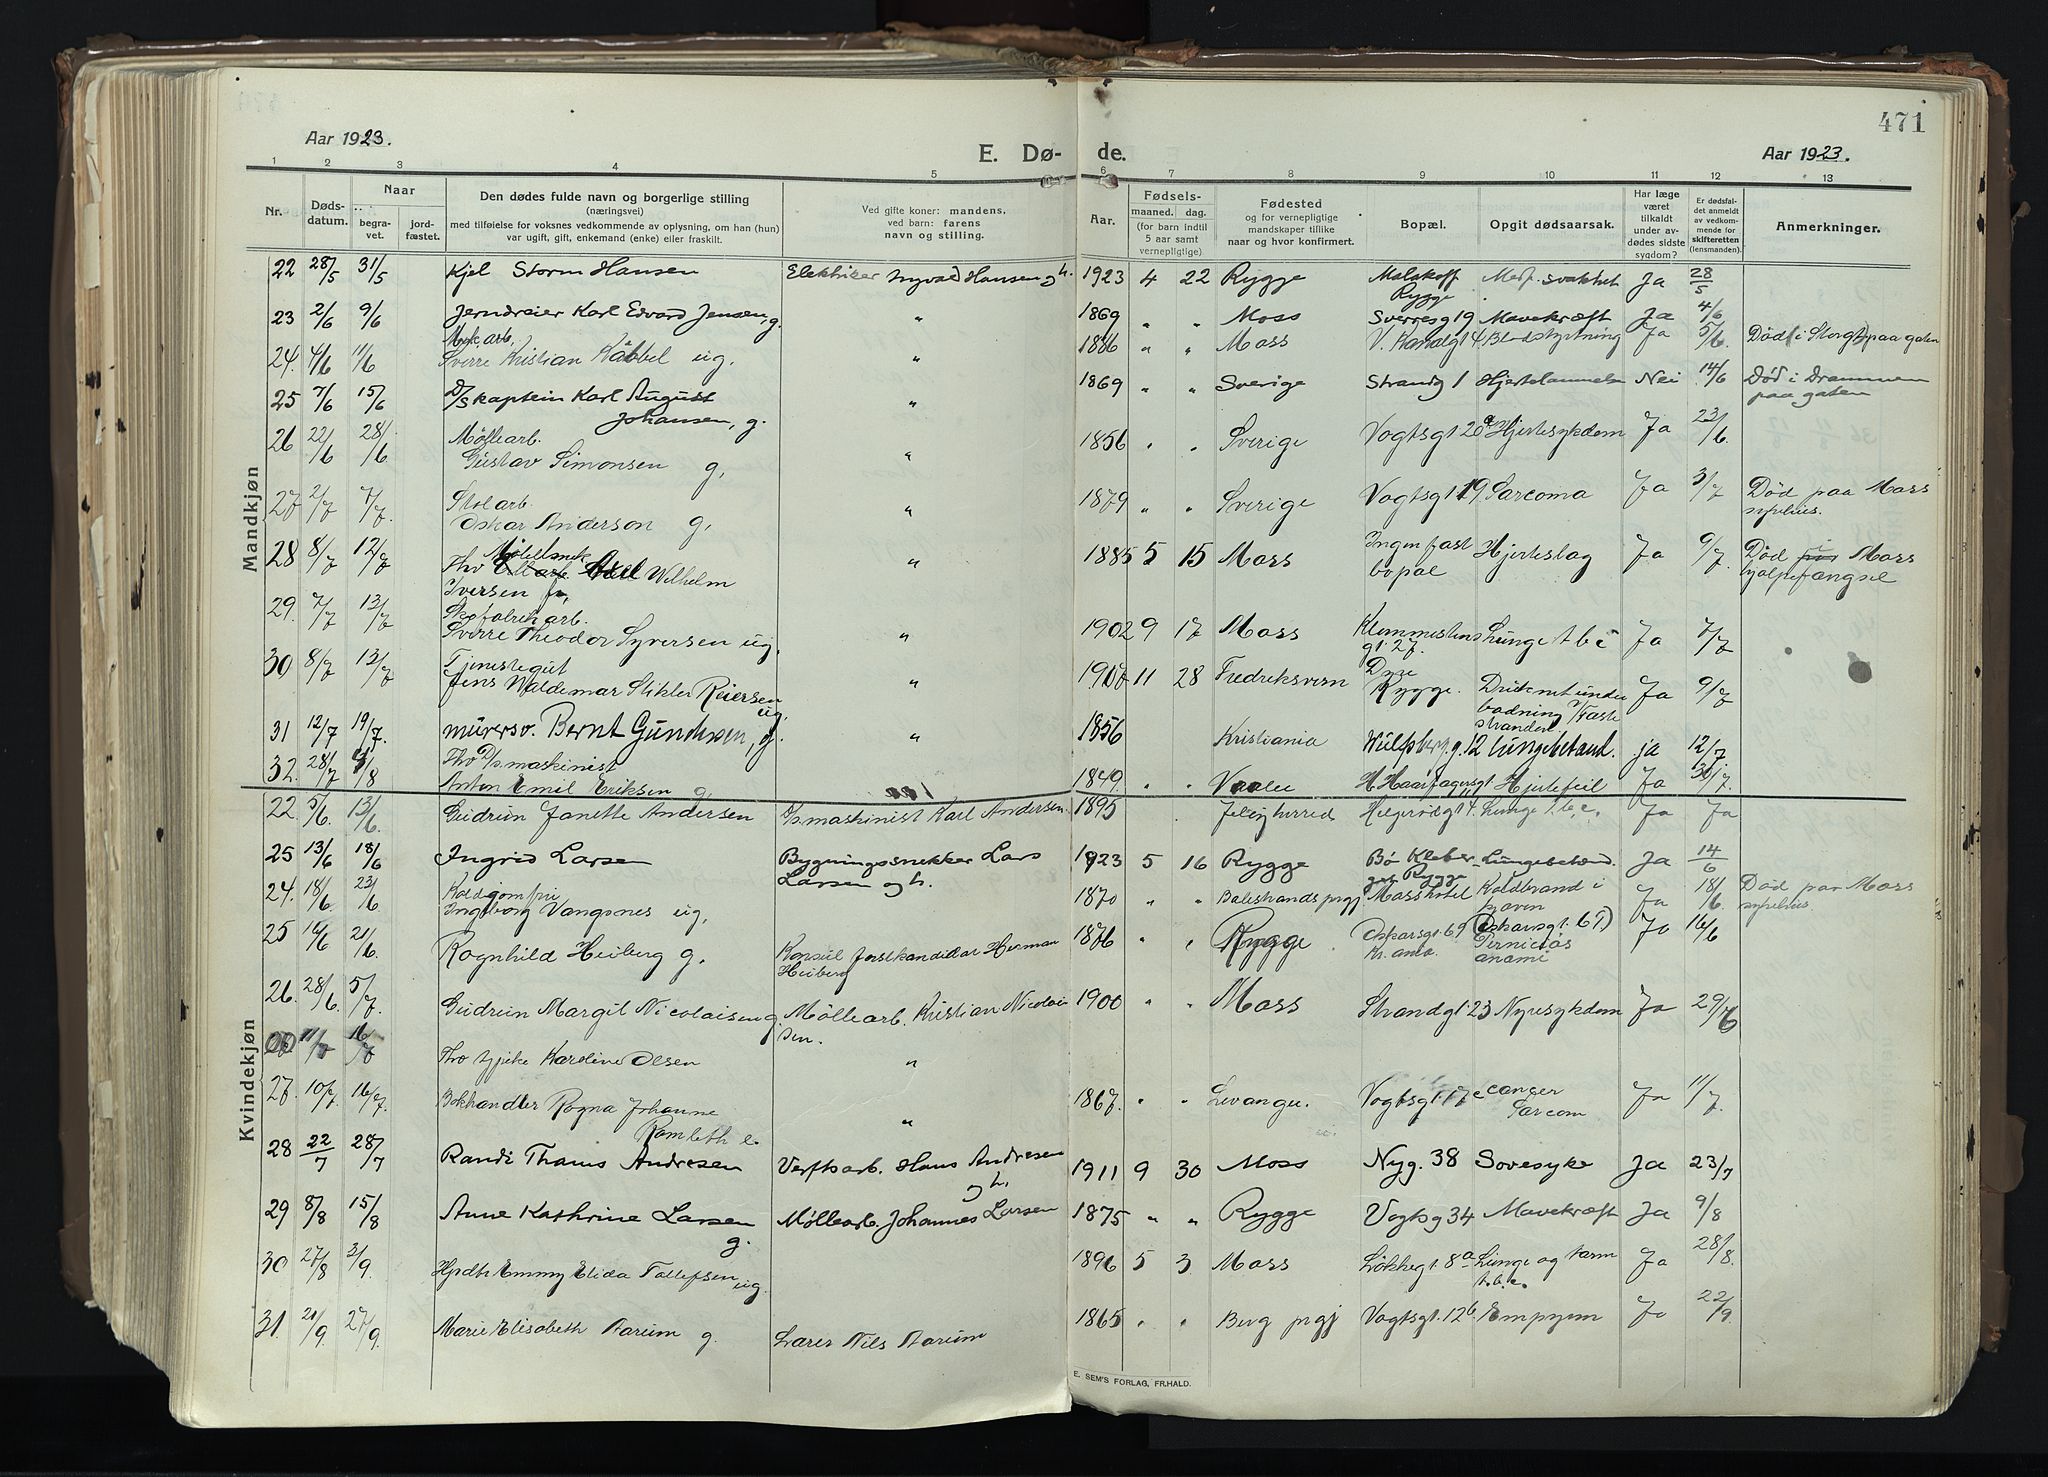 471
Aar 1923.
E. Dø-
de.
Aar 1923.
1 2 3 4 5 6 7 8 9 10 11 12 13
Nr.
Døds-
datum.
Naar
begra-
vet.
jord-
fæstet.
Den dødes fulde navn og borgerlige stilling
(næringsvei)
med tilføielse for voksnes vedkommende av oplysning, om han (hun)
var ugift, gift, enkemand (enke) eller fraskilt.
Ved gifte koner: mandens,
ved barn: farens
navn og stilling.
Aar.
Fødsels-
maaned. dag.
(for barn indtil
5 aar samt
vernepligtige)
Fødested
og for vernepligtige
mandskaper tillike
naar og hvor konfirmert.
Bopæl.
Opgit dødsaarsak.
Har læge
været
tilkaldt
under av-
dødes sidste
sygdom?
Er dødsfal-
det anmeldt
av vedkom-
mende for
skifteretten
(lensmanden).
Anmerkninger.
Mandkjøn
22 28/5 31/5 Kjel Storm Hansen Elektriker Hansen og h. 1923 4 22 Rygge Malakoff Rygge Med. svakhet Ja 28/5
23 2/6 9/6 Jerndreier Karl Edvard Jensen, g. " 1869 " " Moss Sverresg 19 Mavekræft Ja 4/6
Mek. arb.
24. 4/6 11/6 Sverre Kristian Kåbbel ug. " 1886 " " Moss V. Kanalgt 4 Blodstyrtning Ja 5/6 Død i Storgt paa gaten
25 7/6 15/6 D/S kaptein Karl August
Johansen, g. " 1869 " " Sverige Strandg 1 Hjertelammelse Nei 14/6 Død i Drammen
paa gaten
26 22/6 28/6 Møllearb.
Gustav Simonsen g, " 1856 " " Sverige Vogtsgt 20 Hjertesykdom Ja 23/6
27 2/7 7/7. Stolarb.
Oskar Anderson g, " 1879 " " Sverige Vogtsgt 19 Sarcoma Ja 3/7 Død paa Moss
sykehus.
28 8/7 12/7 Møbelsnek
Thv Wilhelm
Iversen " 1885 5 15 Moss Ingen fast
bopæl Hjerteslag Ja 9/7. Død i Moss
hjælpefængsel
29. 7/7 13/7 Skofabrikarb.
Sverre Theodor Syversen ug. " 1902 9 17 Moss Klommestens
gt. 27. Lunge tbc Ja 7/7
30 8/7 13/7 Tjenestegut
Jens Waldemar Stikler Reiersen
ug. " 1907 11 28 Fredriksvern Dyze
Rygge. Druknet under
badning v/Faste
strandens Ja 9/7
31 12/7 19/7. murersv. Bernt Gundersen, g. " 1856 Kristiania Wulfsberg.g. 12 lungebetænd. ja 12/7.
32. 28/7 /8 Thv D/s. maskinist
Anton Emil Eriksen g. 1849. " " Vaaler H. Haarfagersgt Hjertefeil Ja 30/7.
Kvindekjøn
22. 5/6. 13/6. Gudrun Janette Andersen D/s. maskinist Karl Andersen. 1895 Jeløy herred Helgerødgt 7. Lunge t.b.c. Ja Ja
25 13/6 18/6 Ingrid Larsen Bygningssnekker Lars
Larsen og h. 1923 5 16 Rygge Bø Kleber-
get Rygge Lungebetænd. Ja 14/6
24. 18/6. 23/6 Koldjomfru
Ingeborg Vangsnes ug, 1870 " " Balestrands prgj. Moss hotel Koldbrand i
tarven Ja 18/6. Død paa Moss
sykehus.
25 14/6 21/6. Ragnhild Heiberg g. Konsul forstkandidat Herman
Heiberg 1876 " " Rygge Oskarsgt. 69 (Oskarsgt. 67)
Kr.ania. Perniciøs
anæmi Ja 16/6
26. 28/6 5/7. Gudrun Margit Nicolaisen g Møllearb. Kristian Nicolai-
sen. 1900 " " Moss Strandgt. 23 Nyresykdom Ja 29/6
11/7 16/7 Thv pike Karoline Olsen "
27. 10/7. 16/7. Bokhandler Ragna Johanne
Ramleth e. " 1867. " " Levanger. Vogtsgt. 17c cancer
Sarcom Ja 11/7.
28 22/7 28/7 Randi Thams Andresen Verftsarb. Hans Andresen
og h. 1911 9 30 Moss Nyg. 38 Sovesyke Ja 23/7
29 8/8 15/8 Anne Kathrine Larsen
g. Møllearb. Johannes Larsen 1875 " " Rygge Vogtsg 34 Mavekræft Ja 9/8
30 27/8 3/9. Hpdtr Emmy Elida Tollefsen ug. 1896 5 3 Moss Løkkegt 8a Lunge og tarm
t.b.c. Ja 28/8.
31. 21/9 27/9 Marie Elisabeth Aarum g. Lærer Nils Aarum 1865 " " Berg prgj Vogtsgt. 12b. Empyem Ja 22/9.
E. SEM'S FORLAG, FR.HALD.